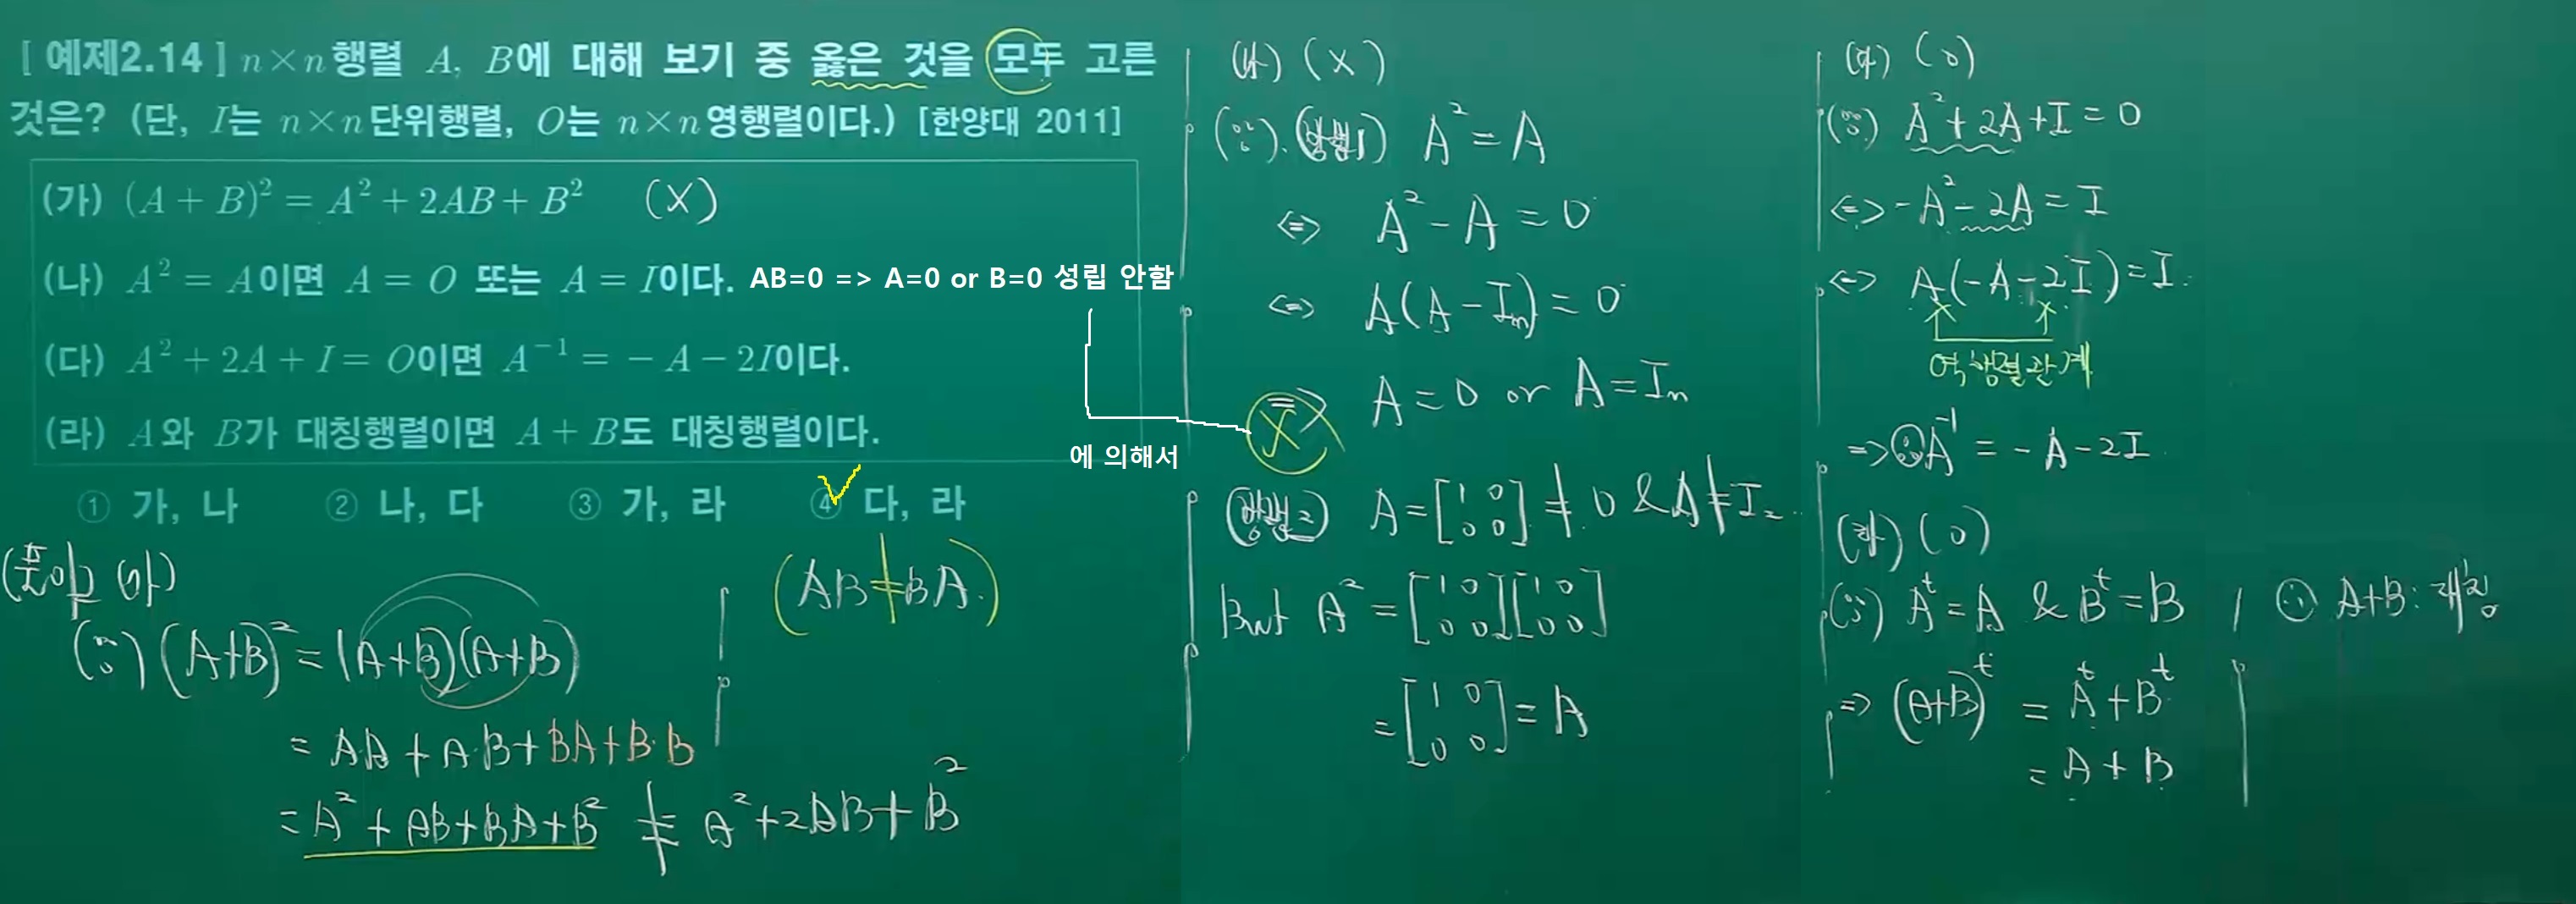 [ 예제2.14 ] n×n행렬 A, B에 대해 보기 중 옳은 것을 모두 고른
것은? (단, I는 n×n단위행렬, O는 n×n영행렬이다.) [한양대 2011]
(가) (A + B)² = A² + 2AB + B² (X)
(나) A² = A이면 A = O 또는 A = I이다. AB=0 => A=0 or B=0 성립 안함
(다) A² + 2A + I = O이면 A⁻¹ = − A − 2I이다.
(라) A와 B가 대칭행렬이면 A + B도 대칭행렬이다.
에 의해서
① 가, 나 ② 나, 다 ③ 가, 라 ④ 다, 라
(풀이) (가)
(AB ≠ BA.)
(∵) (A+B)² = (A+B)(A+B)
= A·A + A·B + BA + B·B
= A² + AB + BA + B² ≠ A² + 2AB + B²
(나) (X)
(∵) (방법1) A² = A
<=> A² - A = 0
<=> A(A - Iₙ) = 0
=> A = 0 or A = Iₙ
X
(방법2) A = [1 0 0 0] ≠ 0 & A ≠ I₂
But A² = [1 0 0 0][1 0 0 0]
= [1 0 0 0] = A
(다) (O)
(∵) A² + 2A + I = 0
<=> -A² - 2A = I
<=> A(-A - 2I) = I
역행렬관계
=> ∴ A⁻¹ = - A - 2I
(라) (O)
(∵) Aᵗ = A & Bᵗ = B
=> (A+B)ᵗ = Aᵗ + Bᵗ
= A + B
∴ A+B : 대칭